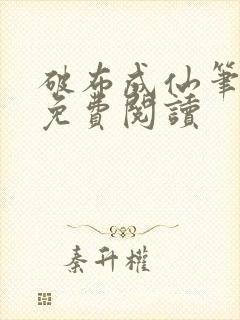 破布成仙筆
免費閱讀
秦升權